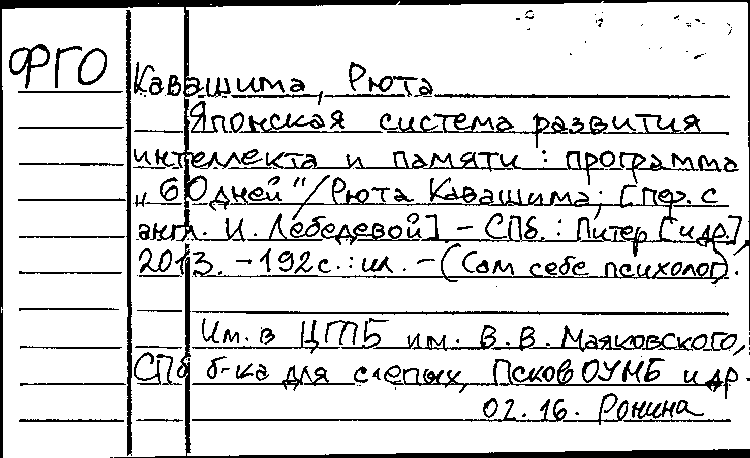 ФГО
Кавашима, Рюта
Японская система развития
интеллекта и памяти : программа
„60 дней"/Рюта Кавашима; [пер. с
англ. И. Лебедевой] - СПб. : Питер [и др.],
2013. - 192 с. : ил. - (Сам себе психолог).
Им. в ЦГПБ им. В. В. Маяковского,
СПб б-ка для слепых, Псков ОУНБ и др.
02.16. Ронина